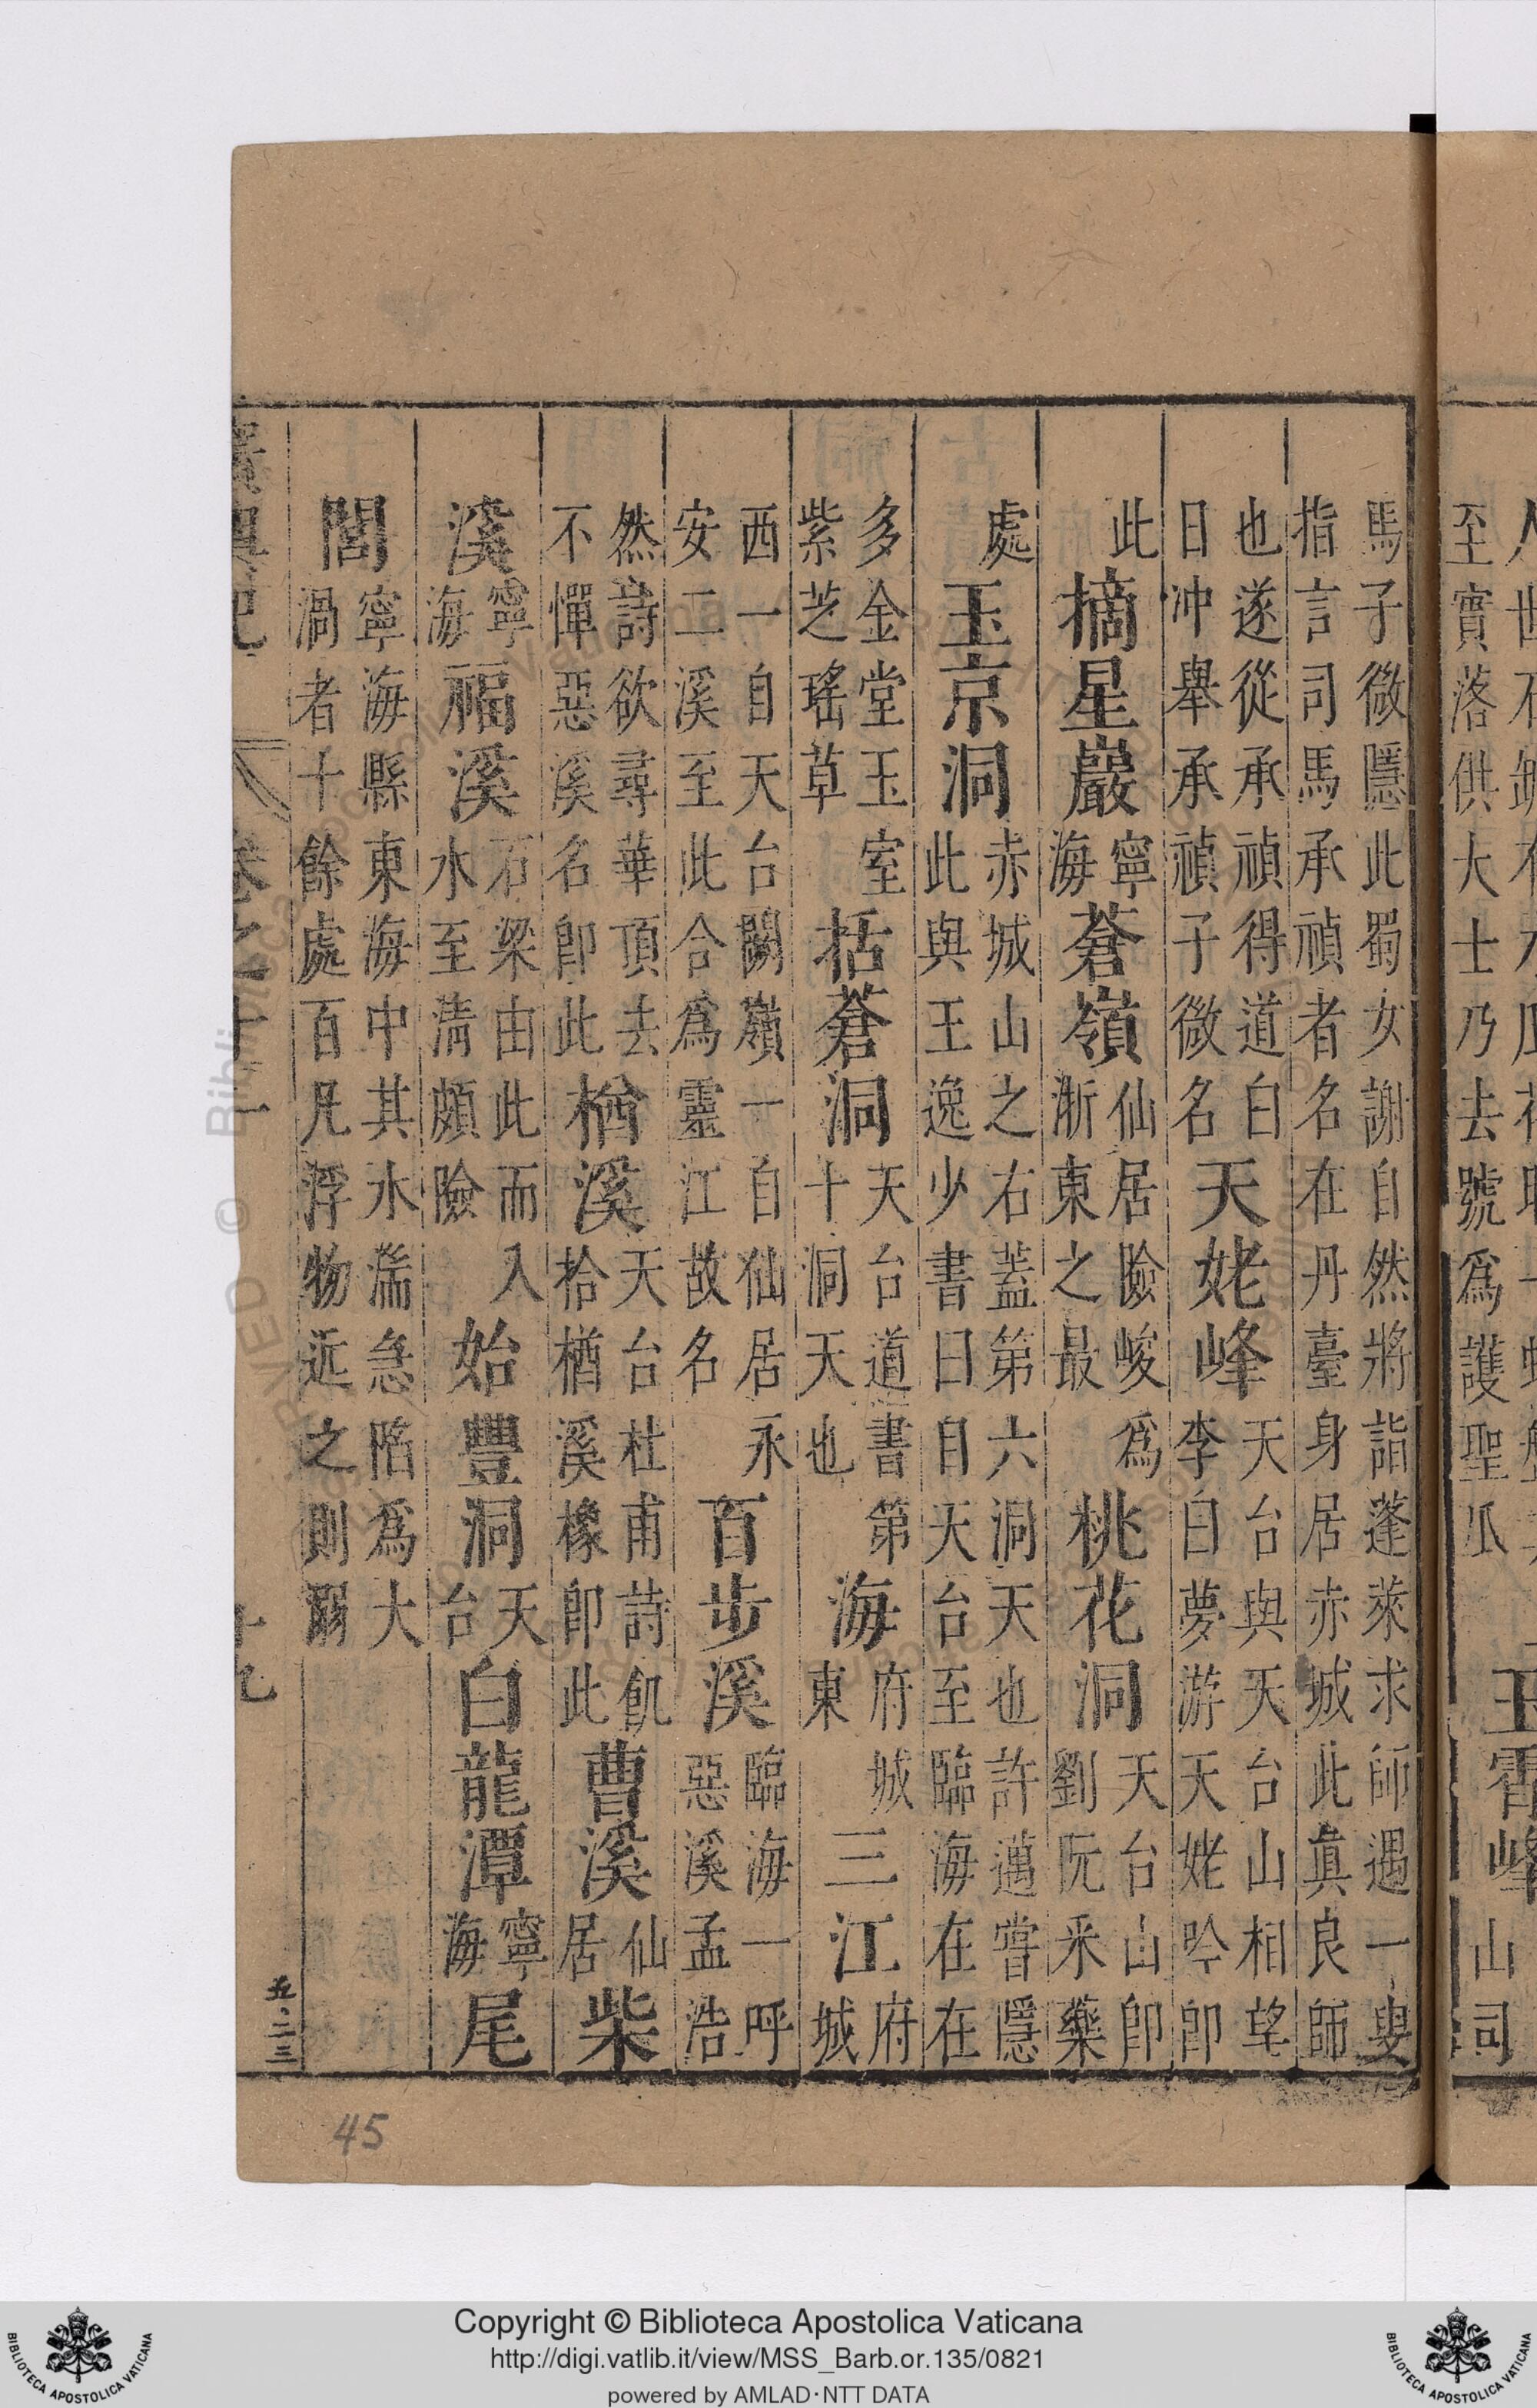 馬子微隱此蜀女謝自然將詣蓬萊求師遇一叟
指言司馬承禎者名在丹臺身居赤城此眞良師
也遂從承禎得道白
日冲舉承禎子微名
天姥峰
天台與天台山相望
李白夢游天姥吟即
此
摘星巖
寧
海
蒼嶺
仙居險峻爲
浙東之最
桃花洞
天台山即
劉阮采藥
處
玉京洞
赤城山之右蓋第六洞天也許邁嘗隱
此與王逸少書曰自天台至臨海在在
多金堂玉室
紫芝瑤草
括蒼洞
天台道書第
十洞天也
海
府城
東
三江
府
城
西一自天台關嶺一自仙居永
安二溪至此合爲靈江故名
百步溪
臨海一呼
惡溪孟浩
然詩欲尋華頂去
不憚惡溪名即此
楢溪
天台杜甫詩飢
拾楢溪橡即此
曹溪
仙
居
柴
溪
寧
海
福溪
石梁由此而入
水至清頗險
始豐洞
天
台
白龍潭
寧
海
尾
閭
寧海縣東海中其水湍急陷爲大
渦者十餘處百凡浮物近之則溺
廣輿記
卷之十一
十九
五二三
45
至實落供大士乃去號爲護聖瓜
玉霄峰
山
司
Copyright © Biblioteca Apostolica Vaticana
http://digi.vatlib.it/view/MSS_Barb.or.135/0821
powered by AMLAD·NTT DATA
BIBLIOTECA APOSTOLICA VATICANA
BIBLIOTECA APOSTOLICA VATICANA